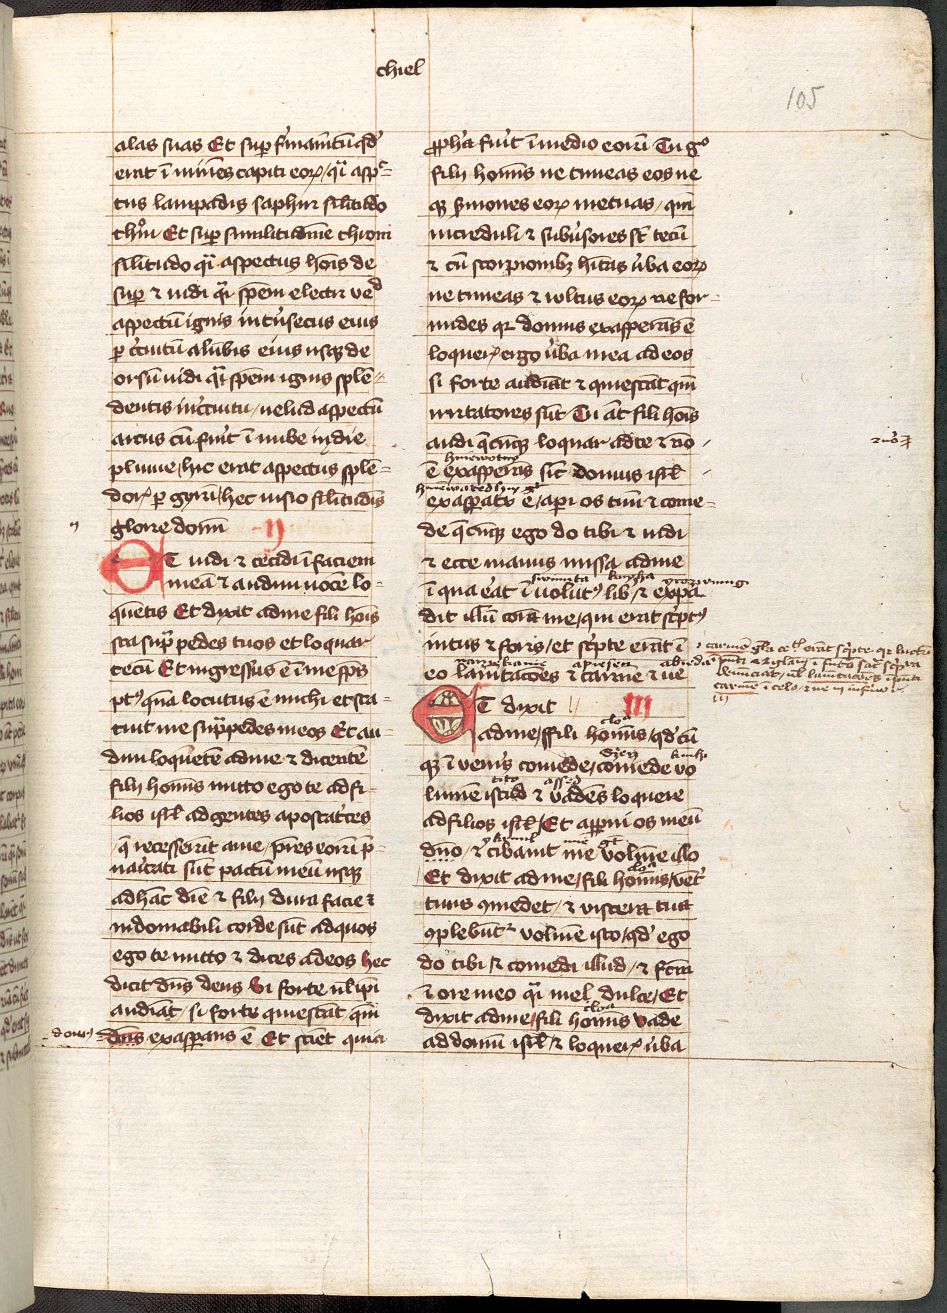 chiel
105
alas suas Et sup firmamētū qd̓
erat ī minēs capiti eoꝝ / qͣi aspc̄-
tus lampadis saphiri silitudo
thͦni Et sup similitudinē throni
silitudo qͣi aspectus hoīs de
sup ⁊ vidi qͣi spēm electri vᵉd
aspectū ignis intͥnsecus eius
p cͥcuitū a lūbis eius usqꝫ de
orsū vidi qͣi spēm ignis splē-
dentis in cͥcuitu / velud aspectū
arcus cū fuīt ī nube in die
pluuie / hic erat aspectus splē-
doꝝ p gyrū / hec visio silitudīs
glorie domī
ij
ET vidi ⁊ cecidi ī faciem
meā ⁊ audiui vocē lo-
quētis Et dixit ad me fili hoīs
sta sup pedes tuos et loquar
tecū Et ingressus ē ī me spūs
pꝰtqͣ locutus ē michi et sta-
tuit me sup pedes meos Et au-
diui loquētē ad me ⁊ dicētē
fili hoīs mitto ego te ad fi-
lios isrl̄ ad gentes apostatͥces
q̄ recesserūt a me / pr̄es eorū p̄-
uaricati sūt pactū meū usqꝫ
ad hāc diē ⁊ filij dura facie ⁊
indomabili corde sūt ad quos
ego te mitto ⁊ dices ad eos hec
dicit dn̄s deus Si forte vl̓ ipī
audiāt si forte quiescāt qm̄
domꝰ
dn̄s exasperans ē Et sciēt quia
ꝓpha fuīt ī medio eorū Tu gͦ
fili homīs ne timeas eos ne
qꝫ s̓mones eoꝝ metuas / qm̄
increduli ⁊ subū̓sores sūt tecū
⁊ cū scorpionibꝫ hītas v̓ba eoꝝ
ne timeas ⁊ wltus eoꝝ ne for-
mides qr domus exasperās ē
loqueris ergo v̓ba mea ad eos
si forte audiāt ⁊ quiescāt qm̄
irritatores sūt Tu āt fili hoīs
audi q̄cūqꝫ loquar ad te ⁊ no-
ē exasperās sic̄ domus isrl̄
exasperatͥx ē / aperi os tuū ⁊ come-
de q̄cūqꝫ ego do tibi ⁊ vidi
⁊ ecce manus missa ad me
ī qua eͣat ī volutꝰ lib̓ ⁊ expā
dit illū corā me / qui erat sc̓ptꝰ
intus ⁊ foris / et sc̓pte erāt ī
eo lamtacōes ⁊ carmē ⁊ ve
iij
ET dixit
ad me / fili homīs / qd̓ cū
qꝫ ī venis comede / comede vo
lumē istud ⁊ vadēs loquere
ad filios isrl̄ / Et apperui os meū
dn̄o / ⁊ cibauit me volūe illo
Et dixit ad me / fili homīs / vēt̓
tuus ꝯmedet / ⁊ viscera tua
ꝯplebūtͬ volūie isto / qd̓ ego
do tibi ⁊ comedi illud / ⁊ fc̄m
ī ore meo qͣi mel dulce / Et
dixit ad me / fili homīs vade
ad domū isrl̄ / ⁊ loqueris v̓ba